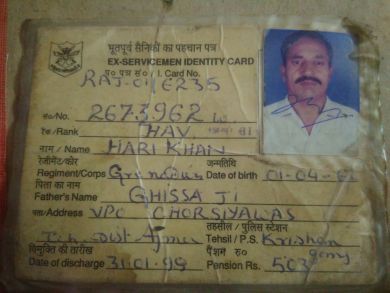 भूतपूर्व सैनिकों का पहचान पत्र
EX-SERVICEMEN IDENTITY CARD
प० पत्र सं० / I. Card No.
RAJ-01/6235
सं०/No. 2673962
रैंक/Rank HAV
नाम / Name HARI KHAN
रेजीमेंट/कोर जन्मतिथि
Regiment/Corps Date of birth 01-04-
पिता का नाम
Father's Name GHISSA JI
पता/Address VPO CHORSIYAWAS
तहसील / पुलिस स्टेशन
Dist Ajmer Tehsil / P.S.
विमुक्ति की तारीख पेंशन रु०
Date of discharge 31-01-99 Pension Rs. 503